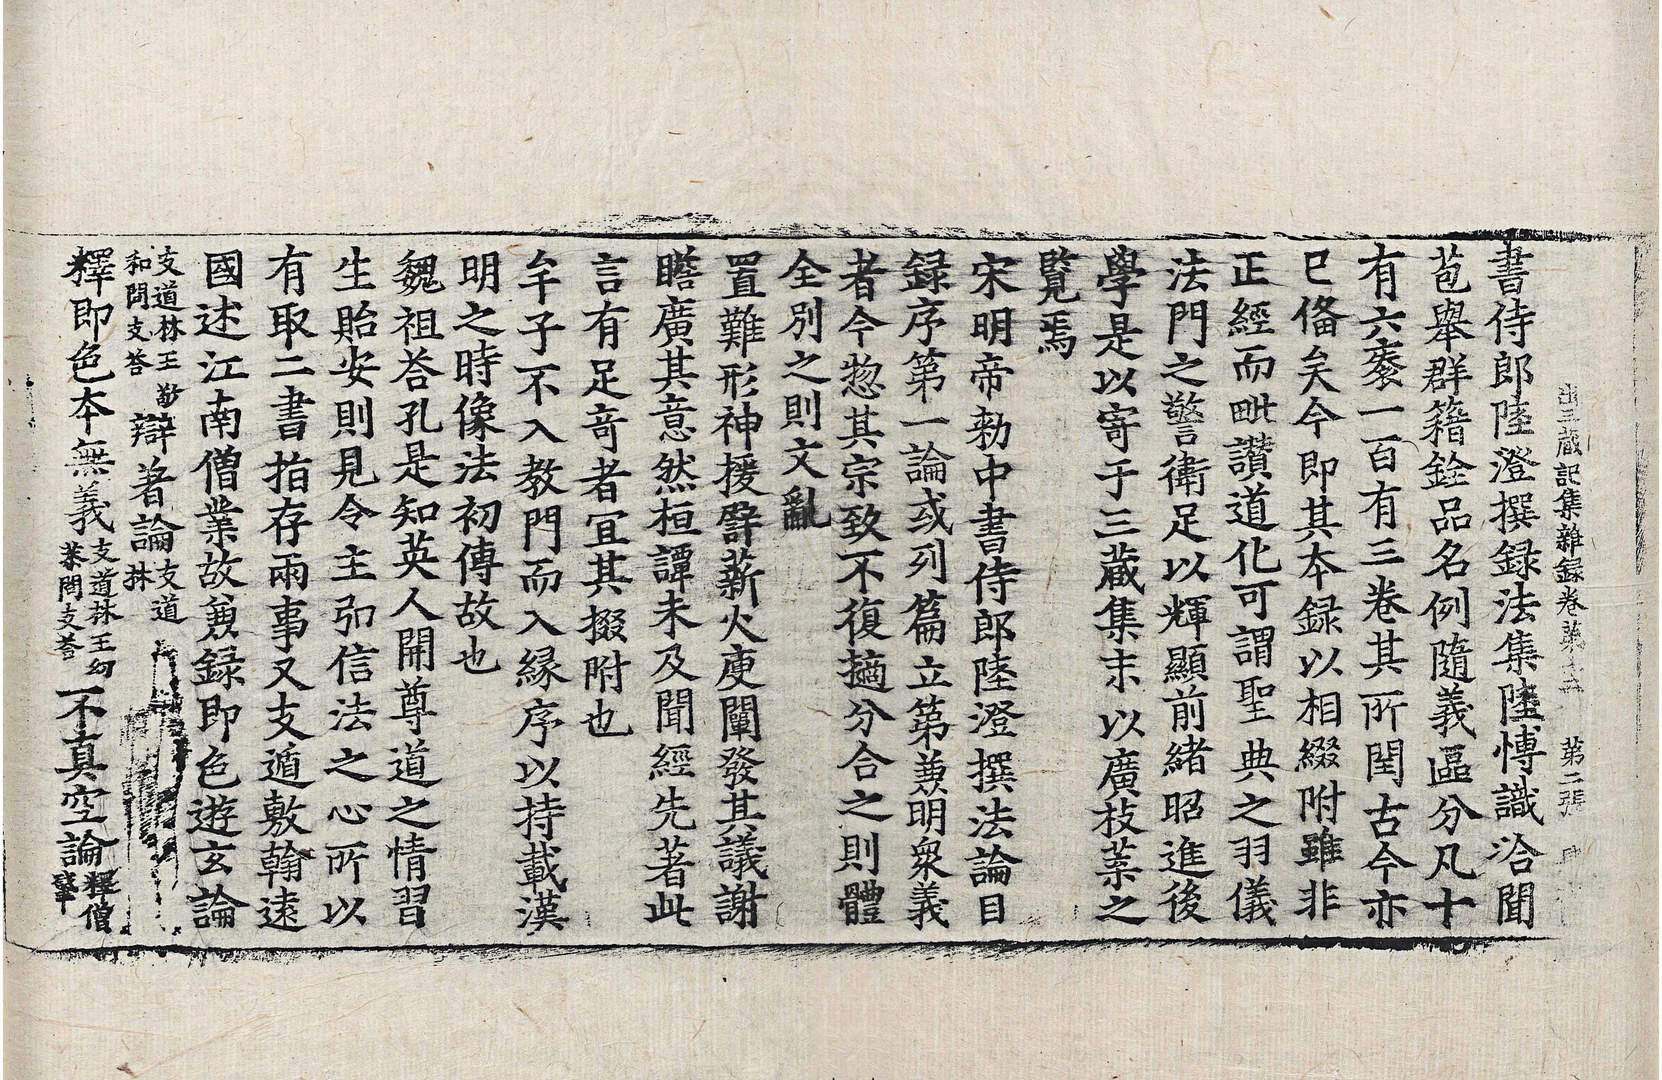 出三藏記集雜録卷第十二 第二張
書侍郎陸澄撰録法集陸愽識洽聞
苞舉群籍銓品名例隨義區分凡十
有六袠一百有三卷其所閏古今亦
已俻矣今即其本録以相綴附雖非
正經而毗讃道化可謂聖典之羽儀
法門之警衛足以輝顯前緒昭進後
學是以寄于三藏集末以廣枝葉之
覽焉
宋明帝勑中書侍郎陸澄撰法論目
録序第一論或列篇立第兼明衆義
者今惣其宗致不復擿分合之則體
全別之則文亂
置難形神援譬薪火庾闡發其議謝
瞻廣其意然桓譚未及聞經先著此
言有足竒者宜其掇附也
牟子不入教門而入縁序以持載漢
明之時像法初傳故也
魏祖荅孔是知英人開尊道之情習
生貽安則見令主弘信法之心所以
有取二書指存兩事又支遁敷翰遠
國述江南僧業故兼録即色遊玄論
支道林王敬和問支荅 辯著論支道林
釋即色本無義支道林王幼恭問支荅 不真空論釋僧肇